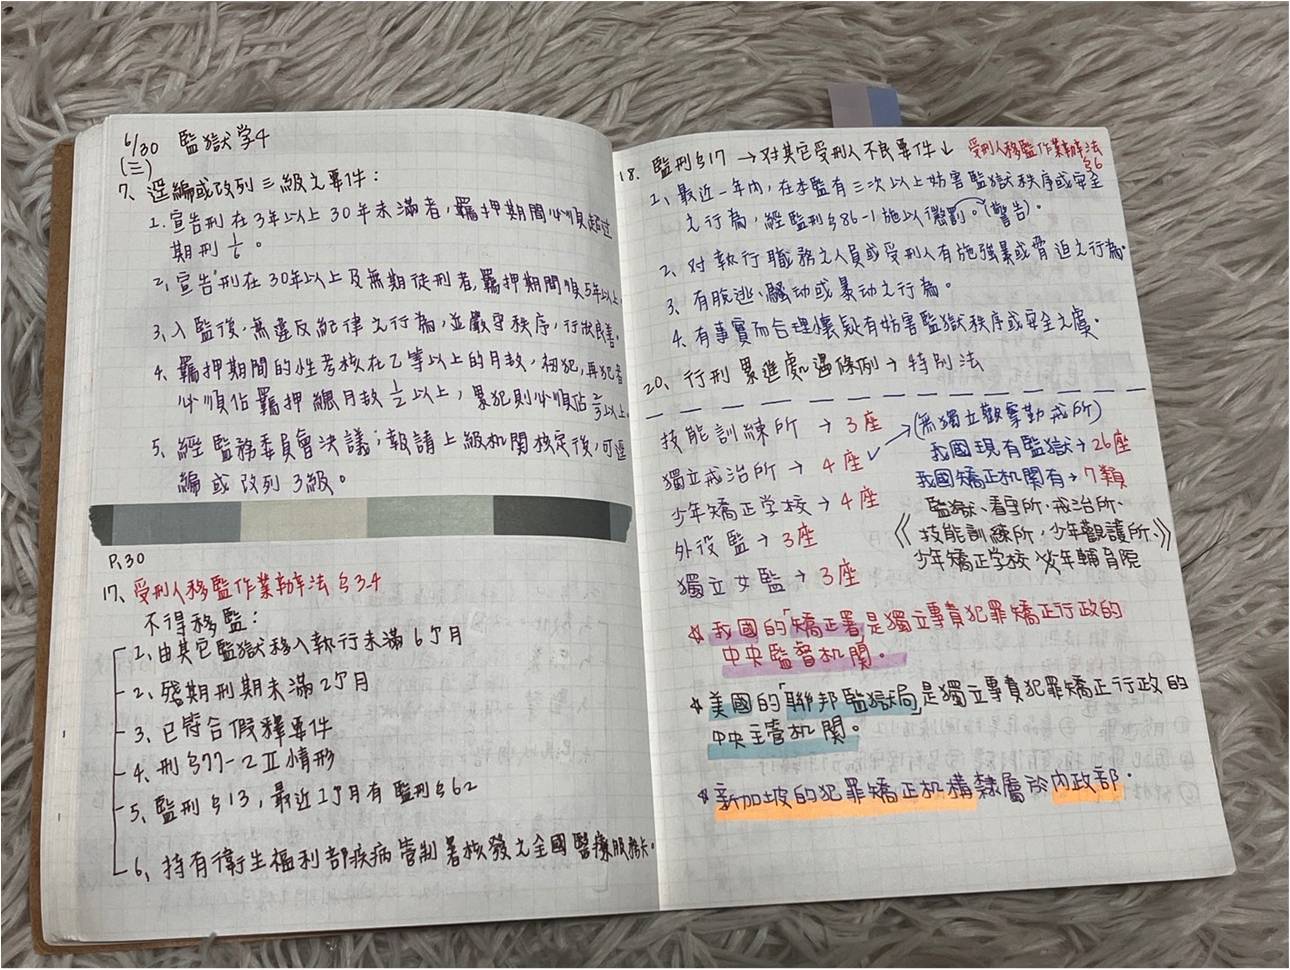 6/30 監獄学4
(三)
7、逕編或改列三級之要件：
1. 宣告刑在3年以上30年未滿者，羈押期間必須超過
期刑1/6。
2、宣告刑在30年以上及無期徒刑者，羈押期間須5年以上
3、入監後，無違反紀律之行為，並嚴守秩序，行狀良善。
4、羈押期間的性考核在乙等以上的月数，初犯，再犯者
必須佔羈押總月数1/2以上，累犯則必須佔2/3以上。
5、經監務委員會決議；報請上級机関核定後，可逕
編或改列3級。
P.30
17、受刑人移監作業辦法§34
不得移監：
1、由其它監獄移入執行未滿6个月
2、殘期刑期未滿2个月
3、已符合假釋要件
4、刑§77-2Ⅱ情形
5、監刑§13，最近1个月有監刑§62
6、持有衛生福利部疾病管制署核發之全國醫療服務卡。
18、監刑§17 →対其它受刑人不良要件↓ 受刑人移監作業辦法
§6
1、最近一年內，在本監有三次以上妨害監獄秩序或安全
之行為，經監刑§86-1施以懲罰。(警告)。
2、対執行職務之人員或受刑人有施強暴或脅迫之行為。
3、有脫逃、騷动或暴动之行為。
4、有事實而合理懷疑有妨害監獄秩序或安全之虞。
20、行刑累進處遇條例→特別法
技能訓練所 → 3座
獨立戒治所 → 4座✓ →(無獨立觀察勒戒所)
少年矯正学校→4座
外役監→3座
獨立女監→3座
我國現有監獄→26座
我國矯正机関有→7類
《監獄、看守所、戒治所、
技能訓練所，少年觀護所、
少年矯正学校，少年輔育院》
☆我國的「矯正署」是獨立專責犯罪矯正行政的
中央監督机関。
☆美國的「聯邦監獄局」是獨立專責犯罪矯正行政的
中央主管机関。
☆新加坡的犯罪矯正机構隸屬於內政部。